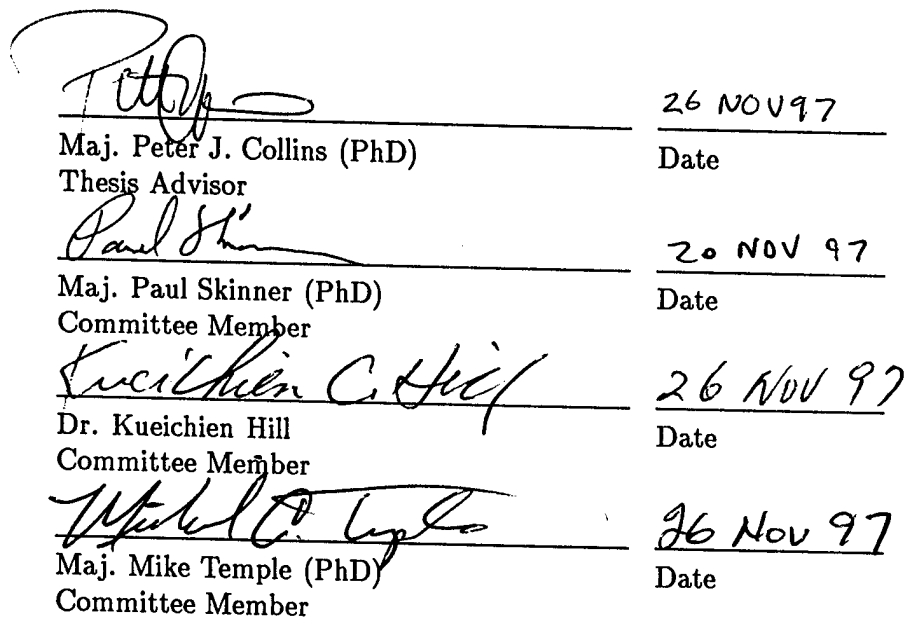 26 NOV 97
Maj. Peter J. Collins (PhD) Date
Thesis Advisor
Paul Skinner 20 NOV 97
Maj. Paul Skinner (PhD) Date
Committee Member
Kueichien C. Hill 26 NOV 97
Dr. Kueichien Hill Date
Committee Member
Michael C. Temple 26 Nov 97
Maj. Mike Temple (PhD) Date
Committee Member